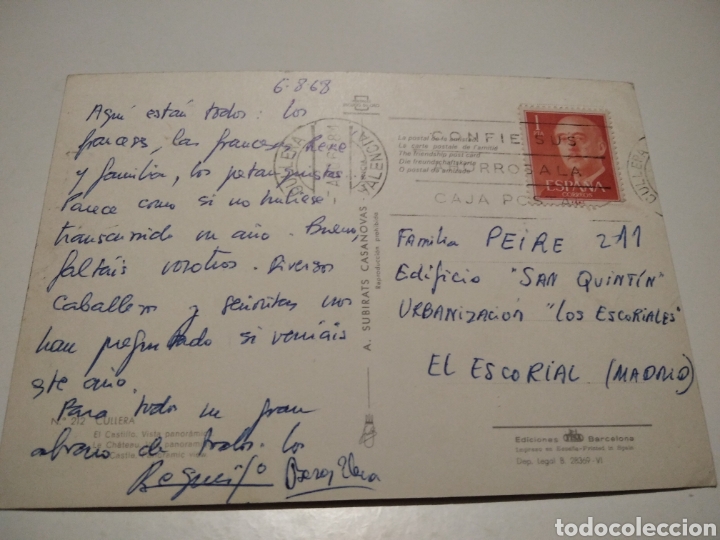 6-8-68
Aquí están todos: los
franceses, las francesas, Rene
y familia, los petanquistas
Parece como si no hubiese
transcurrido un año. Bueno,
faltáis vosotros. Diversos
caballeros y señoritas nos
han preguntado si veníais
este año.
Para todos un gran
abrazo de todos los
N.º 212 CULLERA
El Castillo. Vista panorámica
Le Château. Vue panoramique
A. SUBIRATS CASANOVAS
Reproducción prohibida
CULLERA
VALENCIA
La carte postale de l'amitié
The friendship post card
Die freundschaftskarte
CONFIE SUS
AHORROS A LA
CAJA POSTAL
1
ESPAÑA
CORREOS
CULLERA
Familia PEIRE 211
Edificio "SAN QUINTÍN"
URBANIZACIÓN "LOS ESCORIALES"
EL ESCORIAL (MADRID)
Ediciones Barcelona
Dep. Legal B. 28369-VI
todocoleccion